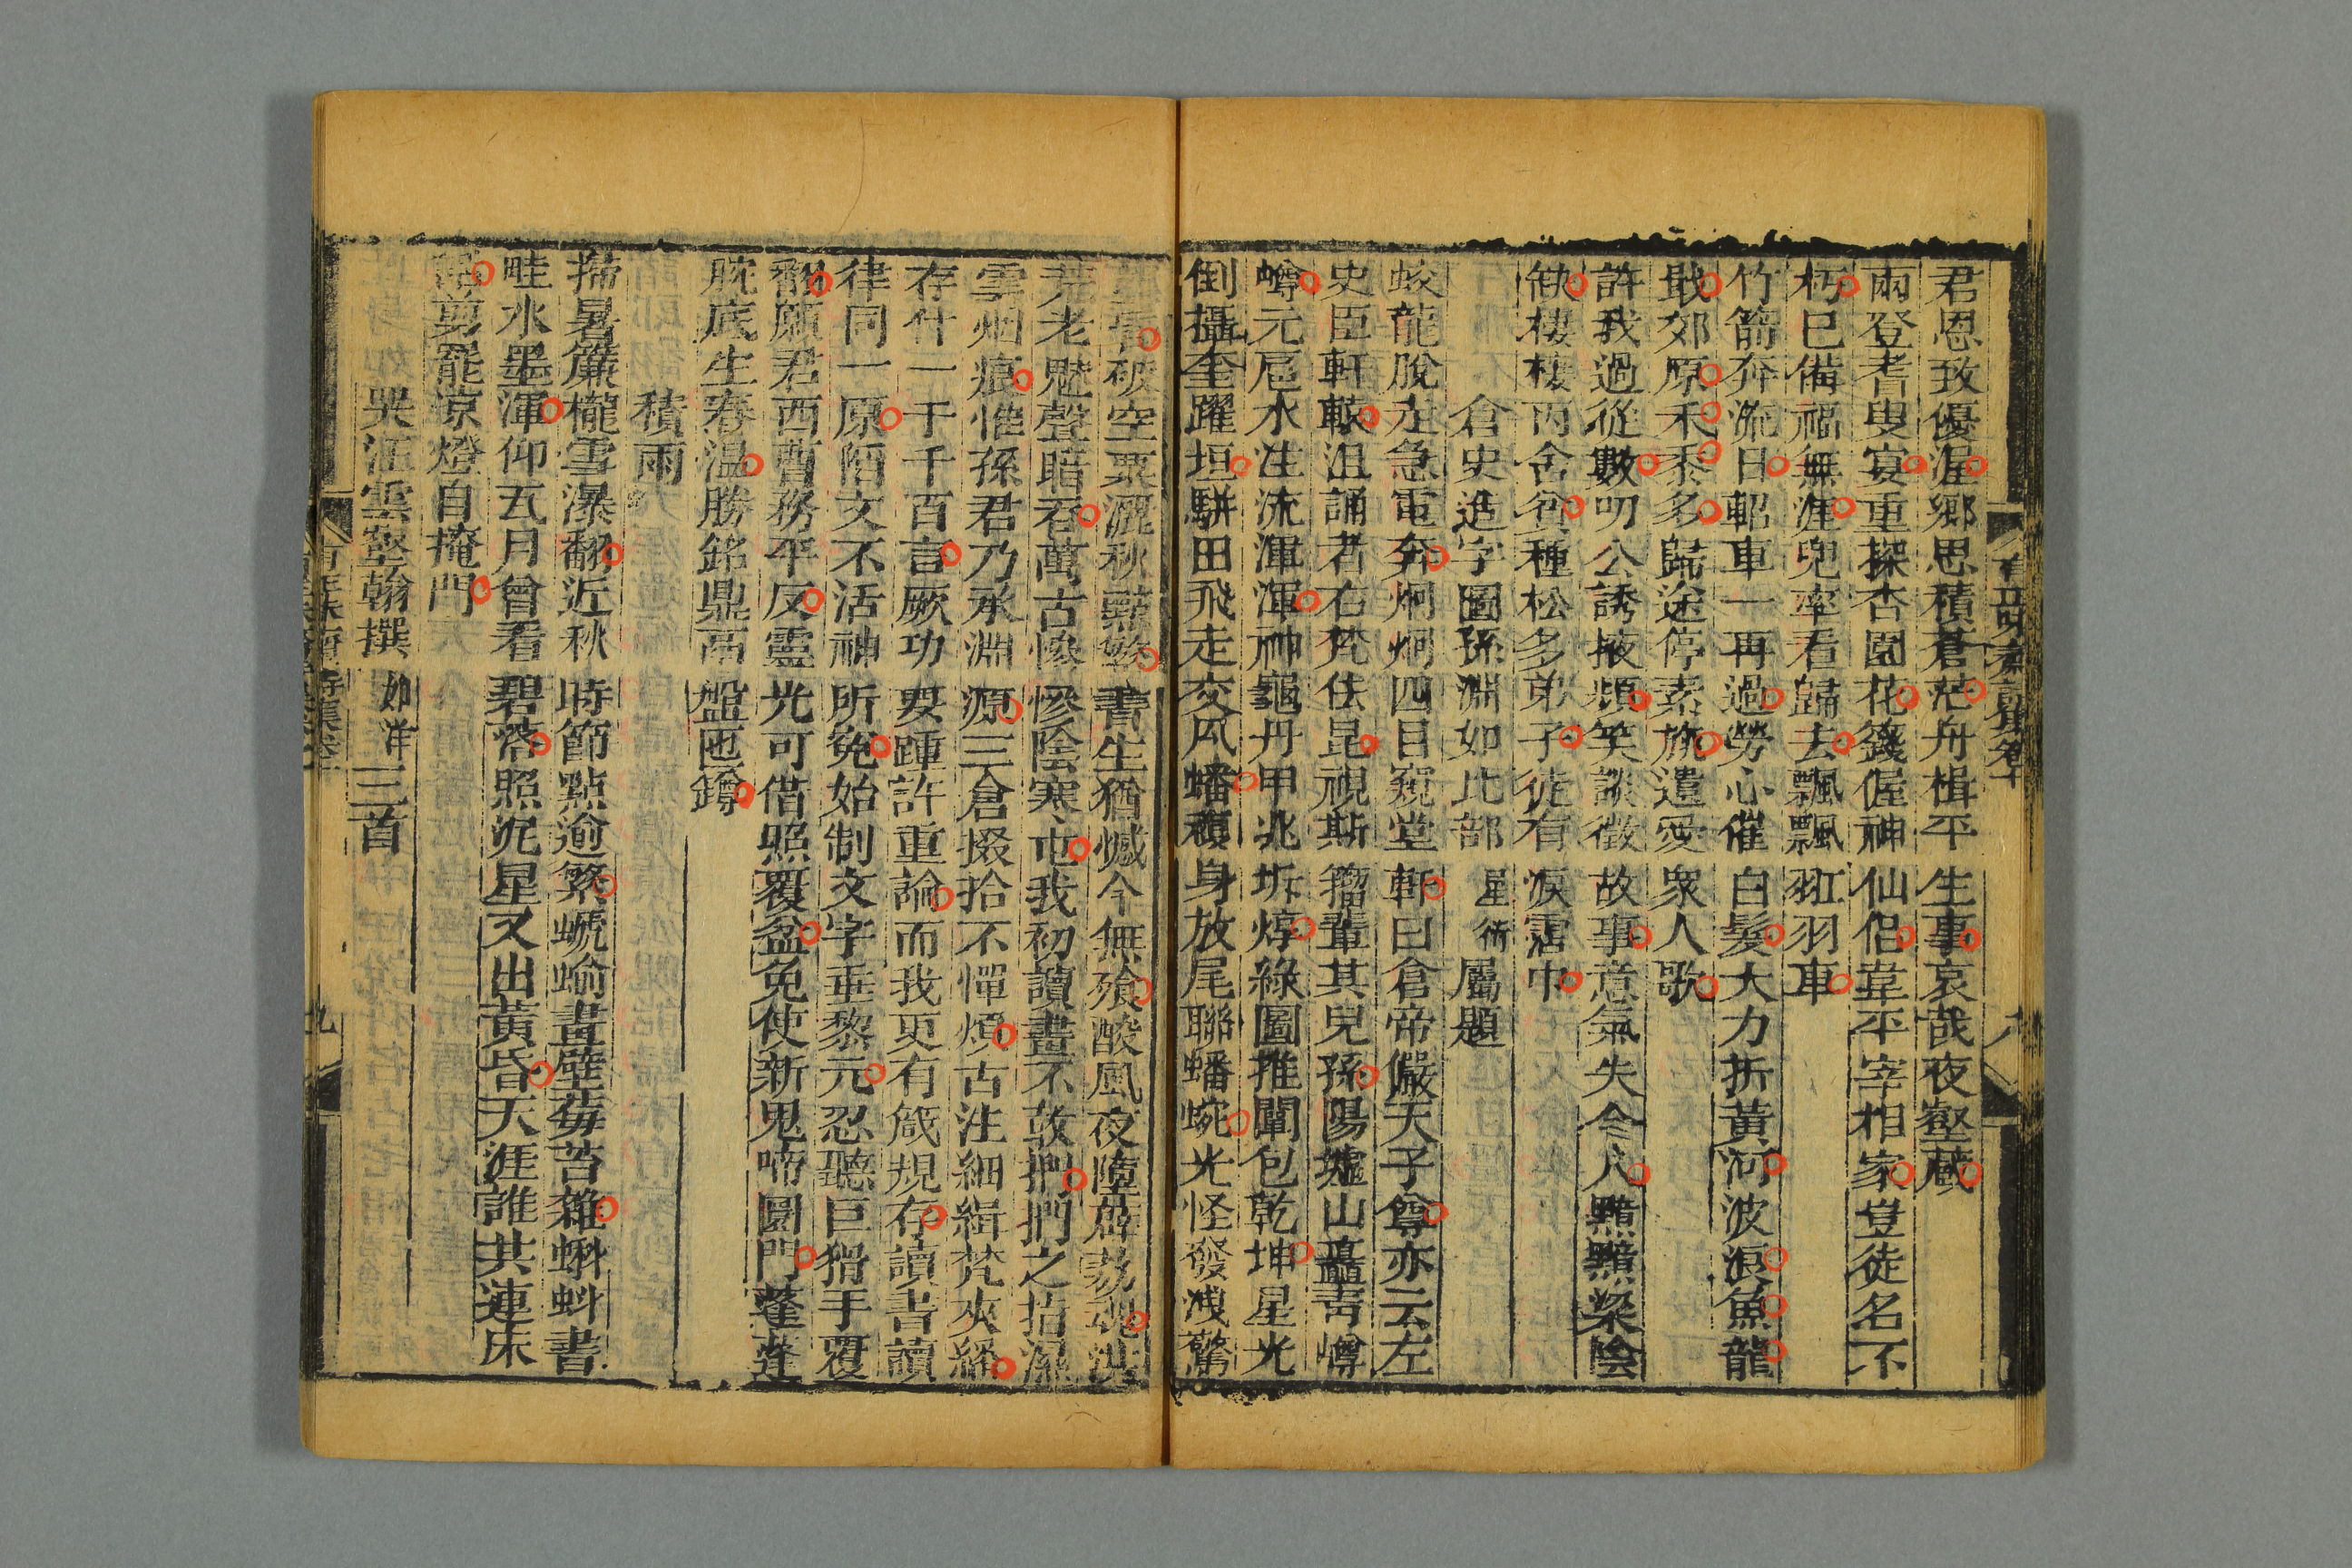 君恩致優渥鄉思積蒼茫舟楫平生事哀哉夜壑藏
兩登耆叟宴重探杏園花籛偓神仙侶韋平宰相家豈徒名不
朽已備福無涯兜率看歸去飄飄羾羽車
竹箭奔流日軺車一再過勞心催白髮大力折黃河波浪魚龍
戢郊原禾黍多歸途停素旐遺愛眾人歌
許我過從數叨公誘掖頻笑談徵故事意氣失今人黯黯梁陰
缺棲棲丙舍貧種松多弟子徒有淚霑巾
倉史造字圖孫淵如比部星衍屬題
蛟龍脫走急電奔炯炯四目窺堂軒曰倉帝儼天子尊亦云左
史臣軒轅沮誦者右梵佉昆視斯籀輩其兒孫陽墟山矗青嶟
嶟元扈水注流渾渾神龜丹甲兆坼焞綠圖推闡包乾坤星光
倒攝奎躍垣駢田飛走交瓜蟠頫身放尾聯蟠蜿光怪發洩驚
破空粟灑秋蘂繁書生猶憾今無飱酸風夜墮薜荔魂
老魅聲暗吞萬古慘慘陰寒屯我初讀畫不敢捫捫之指濕
雲烟痕惟孫君乃承淵源三倉掇拾不憚煩古注細緝梵夾繙
存什一于千百言厥功要踵許重論而我更有箴規存讀書讀
律同一原陌文不活神所冤始制文字垂黎元忍聽巨猾手覆
翻願君西曹務平反靈光可借照覆盆免使新鬼啼圜門蓬蓬
腕底生春溫勝銘鼎鬲盤匜鐏
積雨
暑簾櫳雪瀑翻近秋時節點逾繁螔蝓畫壁莓苔雜蝌蚪書
畦水墨渾仰五月曾看碧落照沉星又出黃昏天涯誰共連床
話剪罷凉燈自掩門
哭汪雲壑翰撰如洋三首